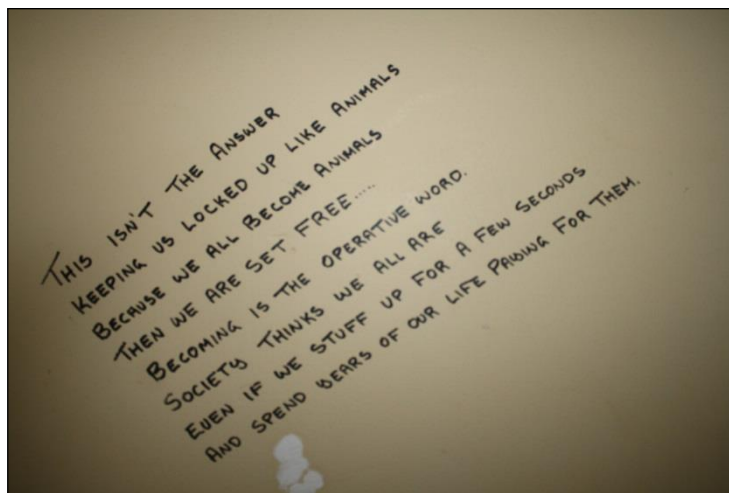 THIS ISN'T THE ANSWER
KEEPING US LOCKED UP LIKE ANIMALS
BECAUSE WE ALL BECOME ANIMALS
THEN WE ARE SET FREE.....
BECOMING IS THE OPERATIVE WORD.
SOCIETY THINKS WE ALL ARE
EVEN IF WE STUFF UP FOR A FEW SECONDS
AND SPEND YEARS OF OUR LIFE PAYING FOR THEM.